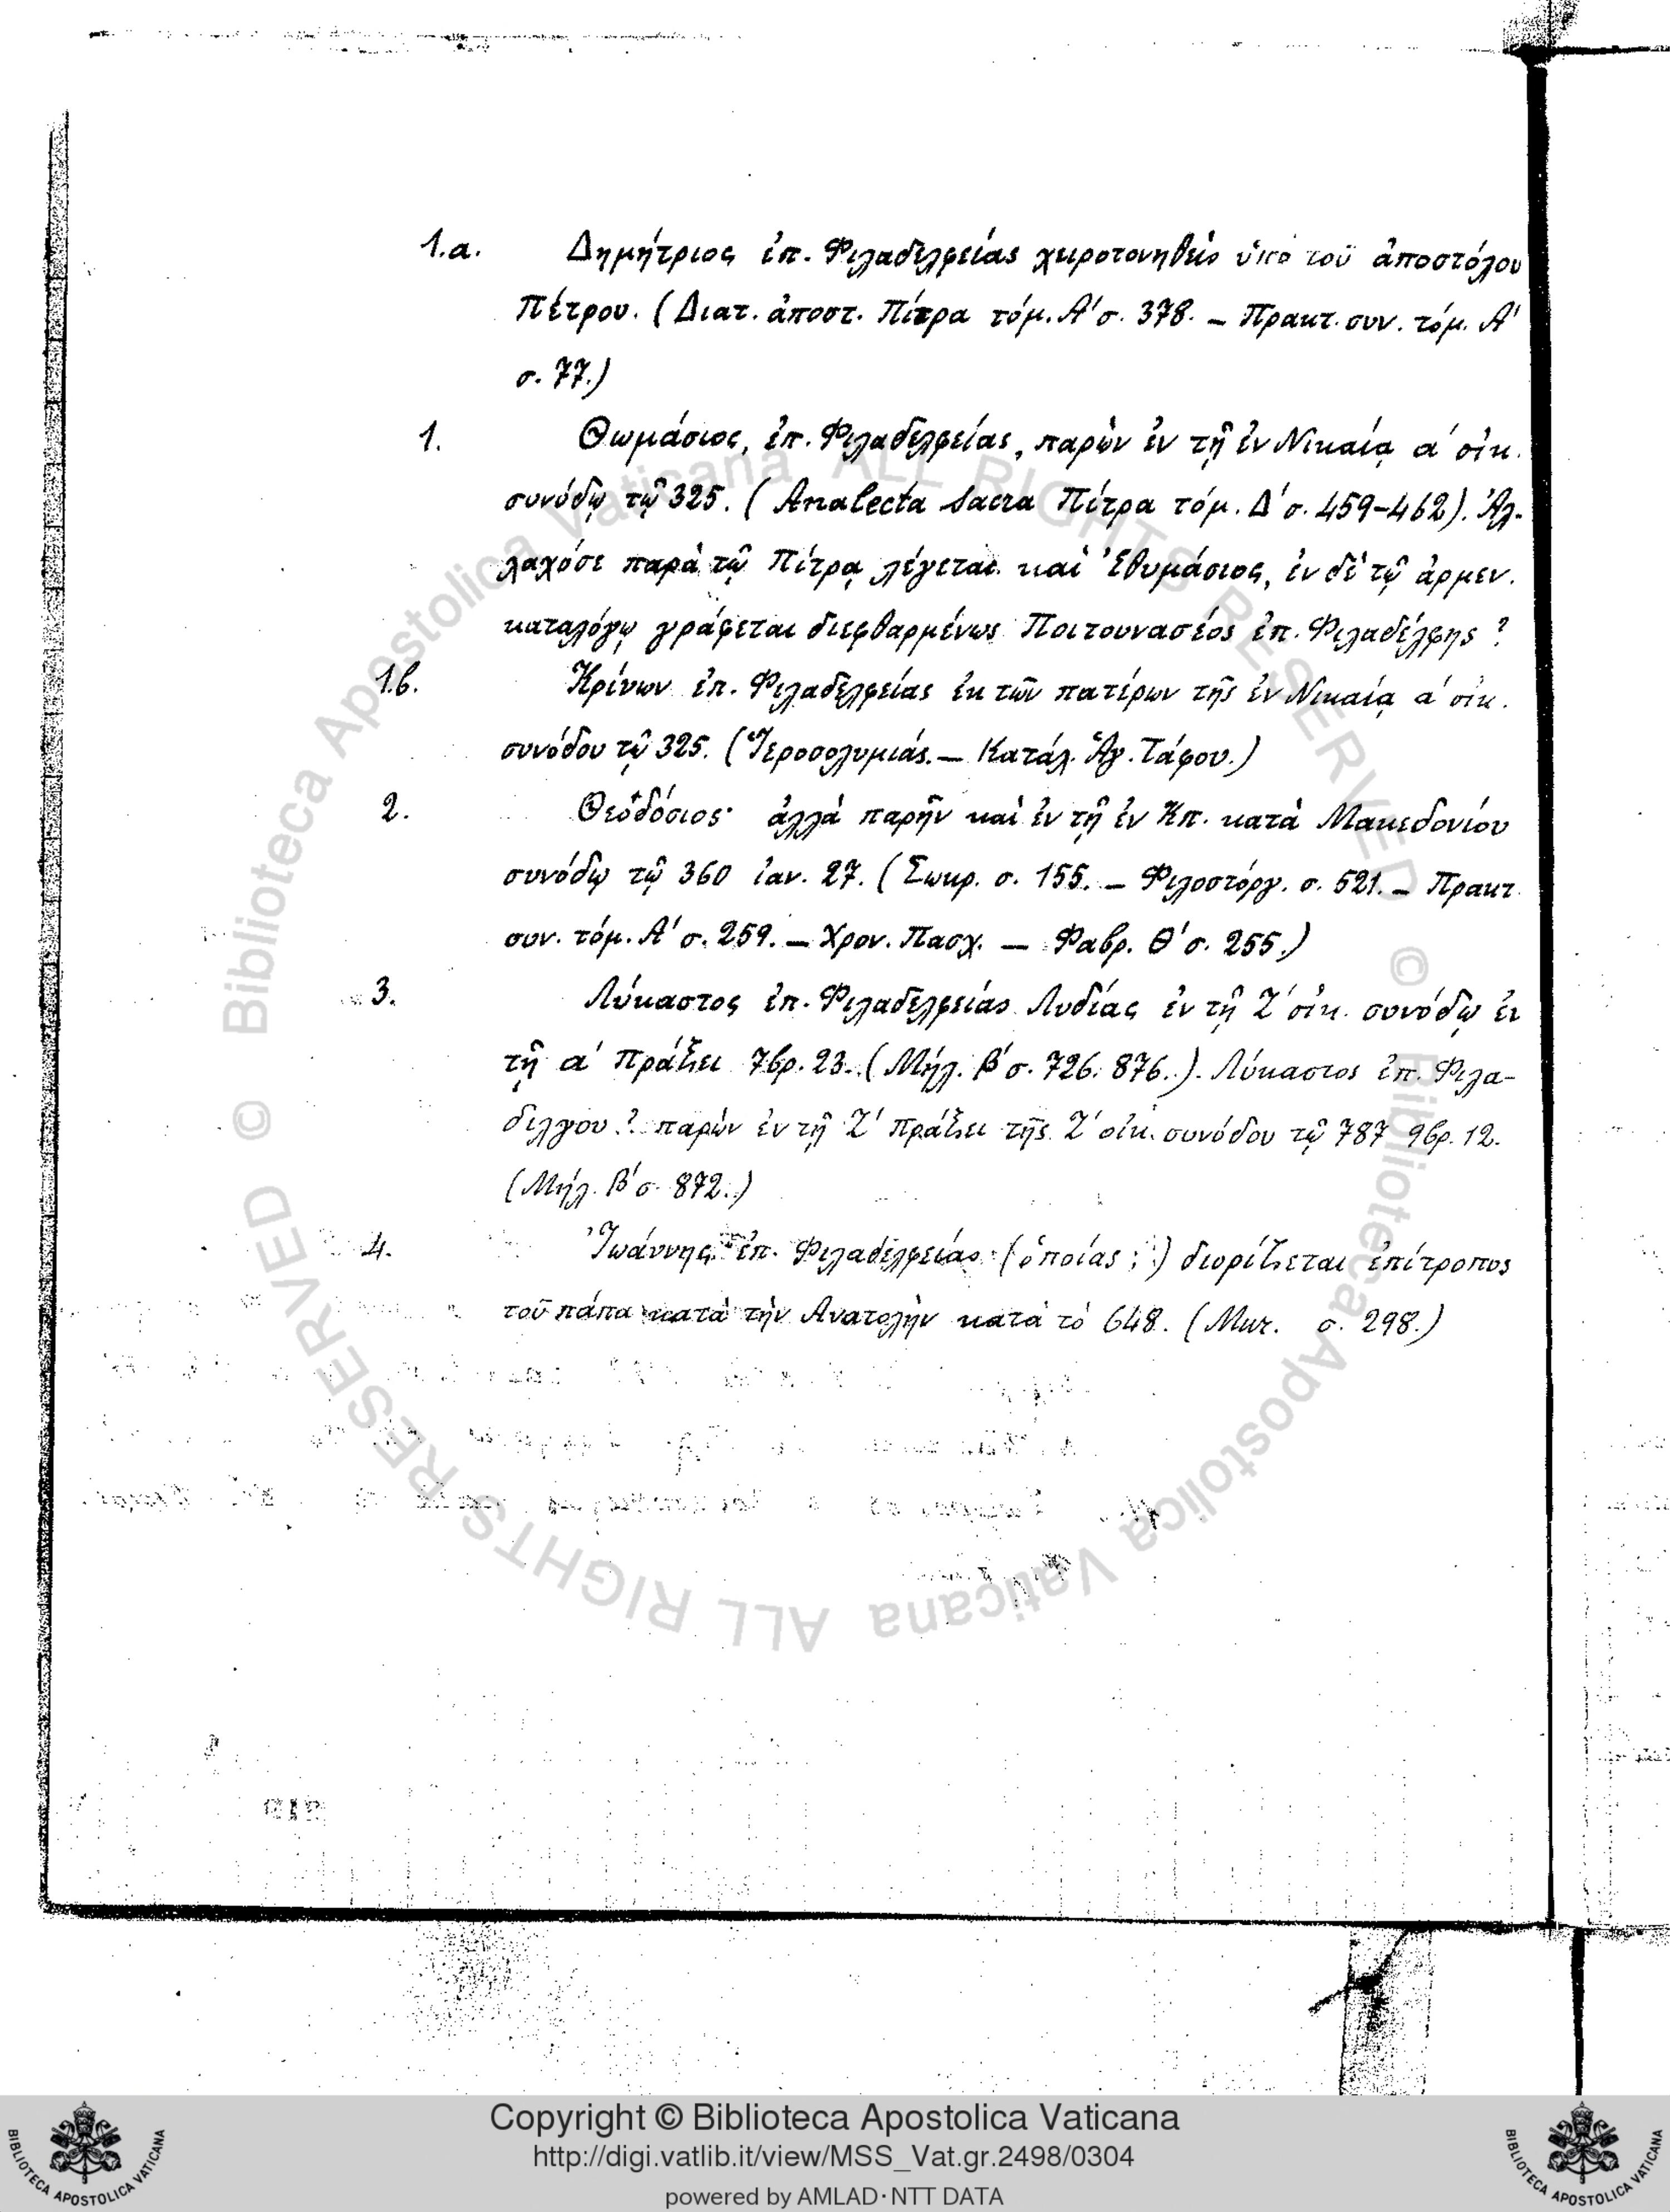 1.α. Δημήτριος ἐπ. Φιλαδελφείας χειροτονηθεὶς ὑπὸ τοῦ ἀποστόλου
Πέτρου. (Διατ. ἀποστ. Πίτρα τόμ. Α' σ. 378. – Πρακτ. συν. τόμ. Α'
σ. 77.)
1. Θωμάσιος, ἐπ. Φιλαδελφείας, παρὼν ἐν τῇ ἐν Νικαίᾳ α' οἰκ.
συνόδῳ τῷ 325. (Analecta Sacra Πίτρα τόμ. Δ' σ. 459–462). Ἀλ-
λαχόσε παρὰ τῷ Πίτρᾳ λέγεται καὶ Ἐθυμάσιος, ἐν δὲ τῷ ἀρμεν.
καταλόγῳ γράφεται διεφθαρμένως Ποιτουνασέος ἐπ. Φιλαδέλφης ?
1.β. Κρίνων ἐπ. Φιλαδελφείας ἐκ τῶν πατέρων τῆς ἐν Νικαίᾳ α' οἰκ.
συνόδου τῷ 325. (Ἱεροσολυμιάς. – Κατάλ. Ἁγ. Τάφου.)
2. Θεόδόσιος· ἀλλὰ παρῆν καὶ ἐν τῇ ἐν Κπ. κατὰ Μακεδονίου
συνόδῳ τῷ 360 ἰαν. 27. (Σωκρ. σ. 155. – Φιλοστόργ. σ. 521. – Πρακτ.
συν. τόμ. Α' σ. 259. – Χρον. Πασχ. – Φαβρ. Θ' σ. 255.)
3. Λύκαστος ἐπ. Φιλαδελφείας Λυδίας ἐν τῇ Ζ' οἰκ. συνόδῳ ἐν
τῇ α' πράξει 7βρ. 23. (Μήλ. Β' σ. 726. 876.). Λύκαστος ἐπ. Φιλα-
δελγου ? παρὼν ἐν τῇ Ζ' πράξει τῆς Ζ' οἰκ. συνόδου τῷ 787 9βρ. 12.
(Μήλ. Β' σ. 872.)
4. Ἰωάννης ἐπ. Φιλαδελφείας (ὁποίας ;) διορίζεται ἐπίτροπος
τοῦ πάπα κατὰ τὴν Ἀνατολὴν κατὰ τὸ 648. (Μur. σ. 298.)
© Biblioteca Apostolica Vaticana ALL RIGHTS RESERVED © Biblioteca Apostolica Vaticana ALL RIGHTS RESERVED
Copyright © Biblioteca Apostolica Vaticana
http://digi.vatlib.it/view/MSS_Vat.gr.2498/0304
powered by AMLAD·NTT DATA
BIBLIOTECA APOSTOLICA VATICANA
BIBLIOTECA APOSTOLICA VATICANA